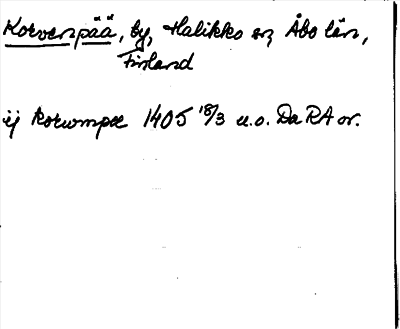 Korvenpää, by, Halikko sn, Åbo län,
Finland
ij Korwmpee 1405 18/3 u.o. Da RA or.